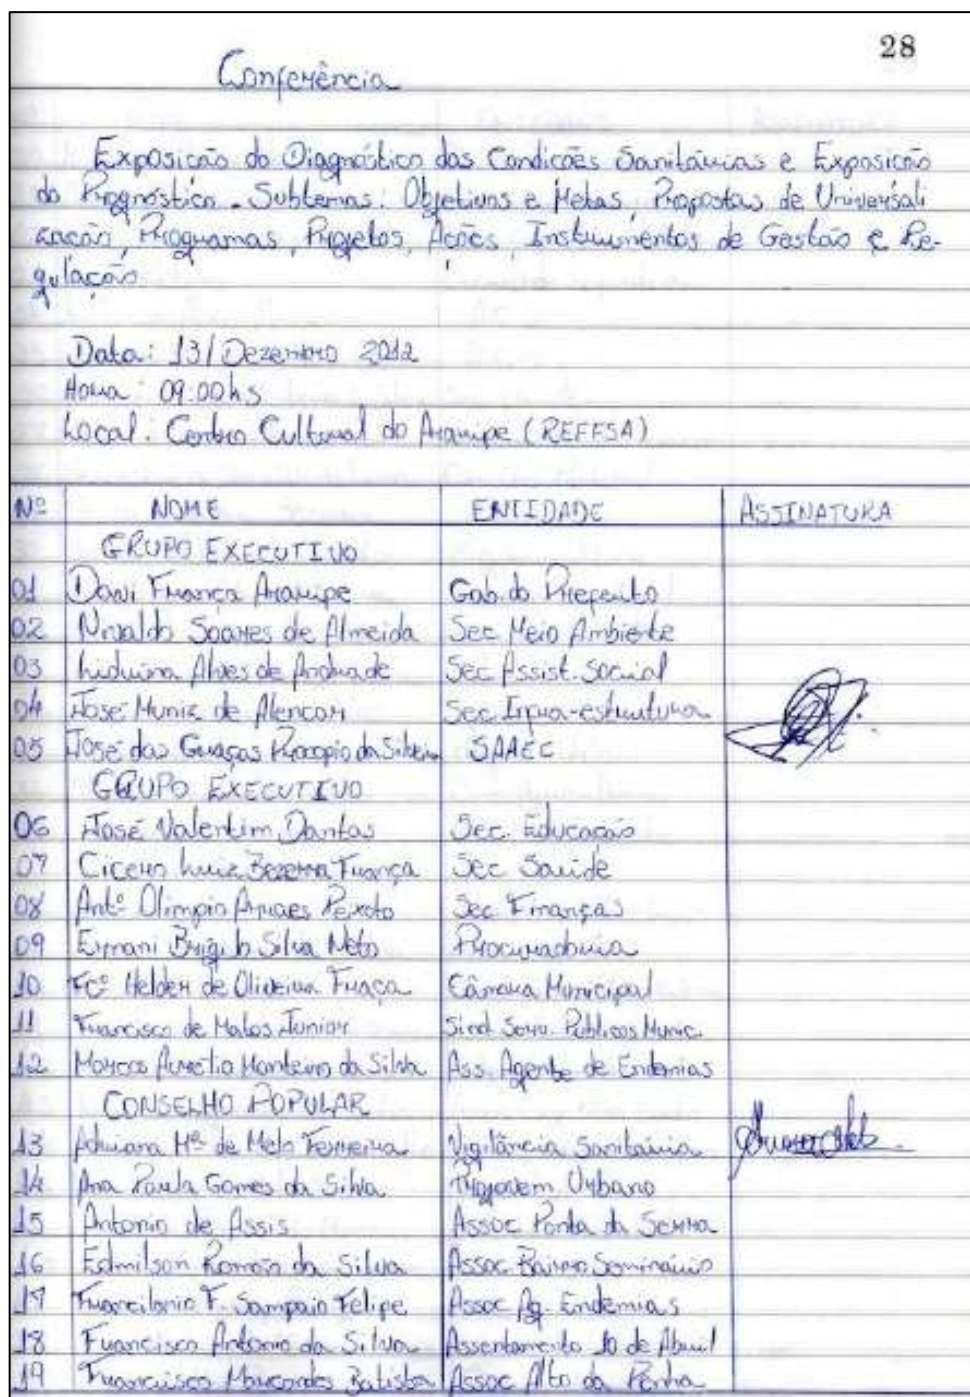 28
Conferência
Exposição do Diagnóstico das Condições Sanitárias e Exposição
do Prognóstico. Subtemas: Objetivos e Metas, Propostas de Universali
zação, Programas, Projetos, Ações, Instrumentos de Gestão e Re-
gulação
Data: 13/Dezembro 2012
Hora: 09:00hs
Local: Centro Cultural do Araripe (REFFSA)
Nº NOME ENTIDADE ASSINATURA
GRUPO EXECUTIVO
01 Davi França Araripe Gab. do Prefeito
02 Nivaldo Soares de Almeida Sec Meio Ambiente
03 Liduina Alves de Andrade Sec Assist. Social
04 José Muniz de Alencar Sec Infra-estrutura
05 José das Graças Procopio da Silveira SAAEC
GRUPO EXECUTIVO
06 José Valentim Dantas Sec. Educação
07 Cicero Luiz Bezerra França Sec Saúde
08 Antº Olimpio Peixoto Sec. Finanças
09 Silva Neto Procuradoria
10 Fcº Helder de Oliveira Fraça Câmara Municipal
11 Francisco de Matos Junior Sind. Serv. Públicos Munic.
12 Marcos Aurelio Monteiro da Silva Ass. Agente de Endemias
CONSELHO POPULAR
13 Adriana Mª de Melo Ferreira Vigilância Sanitária
14 Ana Paula Gomes da Silva Projovem Urbano
15 Antonio de Assis Assoc Ponta da Serra
16 Edmilson Romão da Silva Assoc. Bairro Seminário
17 F. Sampaio Felipe Assoc Ag. Endemias
18 Francisco Antonio da Silva Assentamento 10 de Abril
19 Francisco Marcondes Batista Assoc Alto da Penha